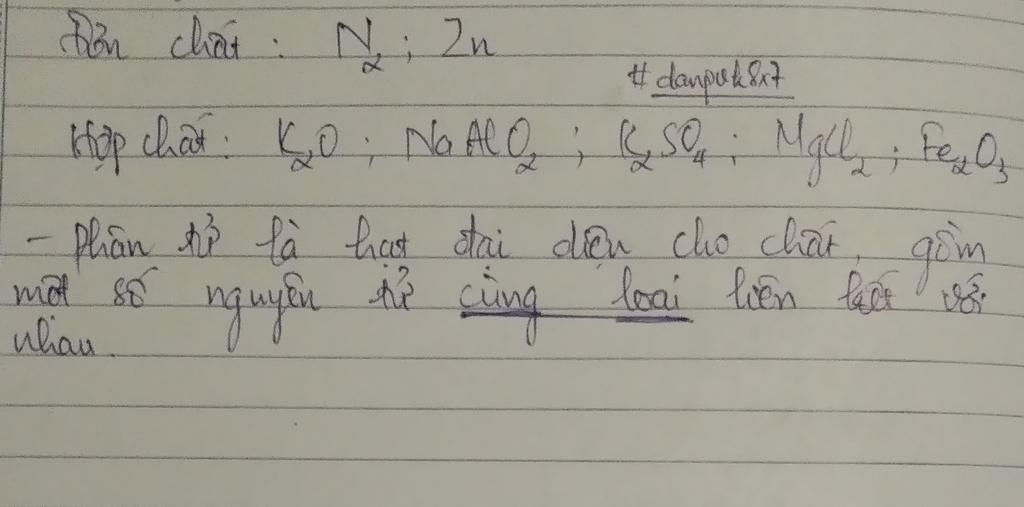 Đơn chất : N₂ ; Zn
#danpuk8x7
Hợp chất : K₂O ; NaAlO₂ ; K₂SO₄ ; MgCl₂ ; Fe₂O₃
- phân tử là hạt đại diện cho chất, gồm
một số nguyên tử cùng loại liên kết với
nhau.